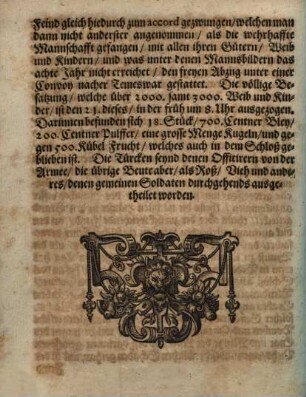 Feind gleich hiedurch zum accord gezwungen/welchen man
dann nicht anderster angenommen/ als die wehrhaffte
Mannschafft gefangen/ mit allen ihren Gütern/ Weib
und Kindern/ und was unter denen Mannsbildern das
achte Jahr nicht erreichet/ den freyen Abzug unter einer
Convoy nacher Temeswar gestattet. Die völlige Be-
satzung/ welche über 2000. samt 3000. Weib und Kin-
der/ ist den 21. dieses/ in der früh um 8. Uhr ausgezogen.
Darinnen befunden sich 18. Stück/ 700. Centner Bley/
200. Centner Pulffer/ eine grosse Menge Kugeln/und ge-
gen 500. Kübel Frucht/ welches auch in dem Schloß ge-
blieben ist. Die Türcken seynd denen Officirern von der
Armee/ die übrige Beute aber/ als Roß/ Vieh und ande-
res/ denen gemeinen Soldaten durchgehends ausge-
theilet worden.